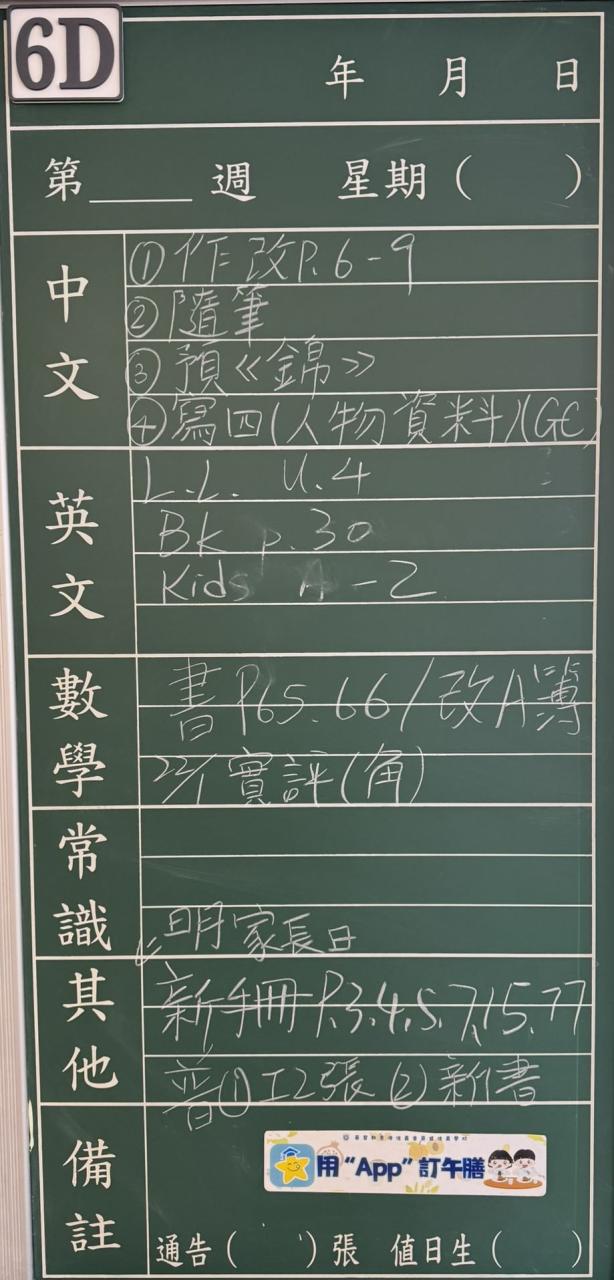 6D
年 月 日
第____週 星期( )
中文
①作改P.6-9
②隨筆
③預《錦》
④寫四(人物資料)(GC)
英文
L.L. U.4
Bk p.30
Kids A-Z
數學
書P65.66/改A簿
22/1實評(角)
常識
明家長日
其他
新手冊P.3.4.5.7,15.77
普①工2張②新書
備註
用“App”訂午膳
通告( )張 值日生( )